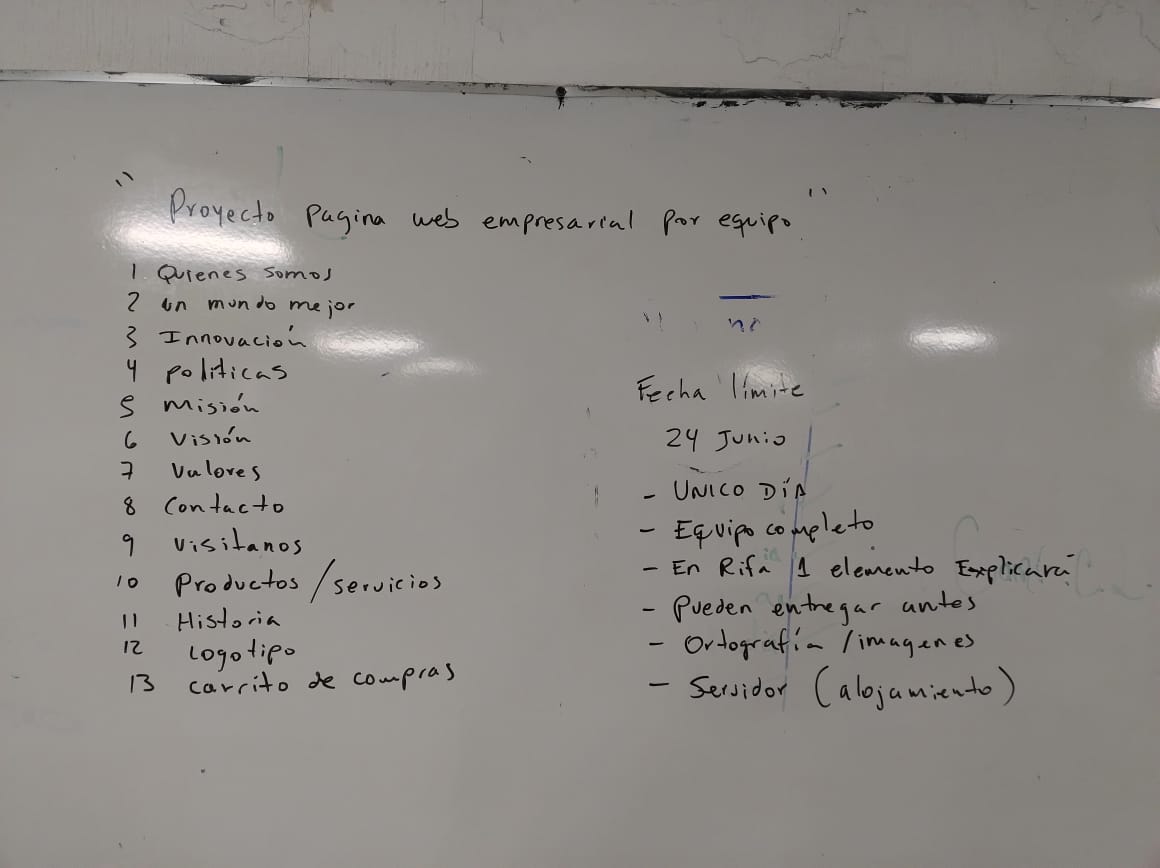 " Proyecto Pagina web empresarial por equipo "
1 Quienes somos
2 un mundo mejor
3 Innovación
4 politicas
5 Misión
6 Visión
7 Valores
8 Contacto
9 Visitanos
10 Productos/servicios
11 Historia
12 Logotipo
13 carrito de compras
Fecha límite
24 Junio
- UNICO DÍA
- Equipo completo
- En Rifa 1 elemento Explicará
- Pueden entregar antes
- Ortografía / imagenes
- Servidor (alojamiento)